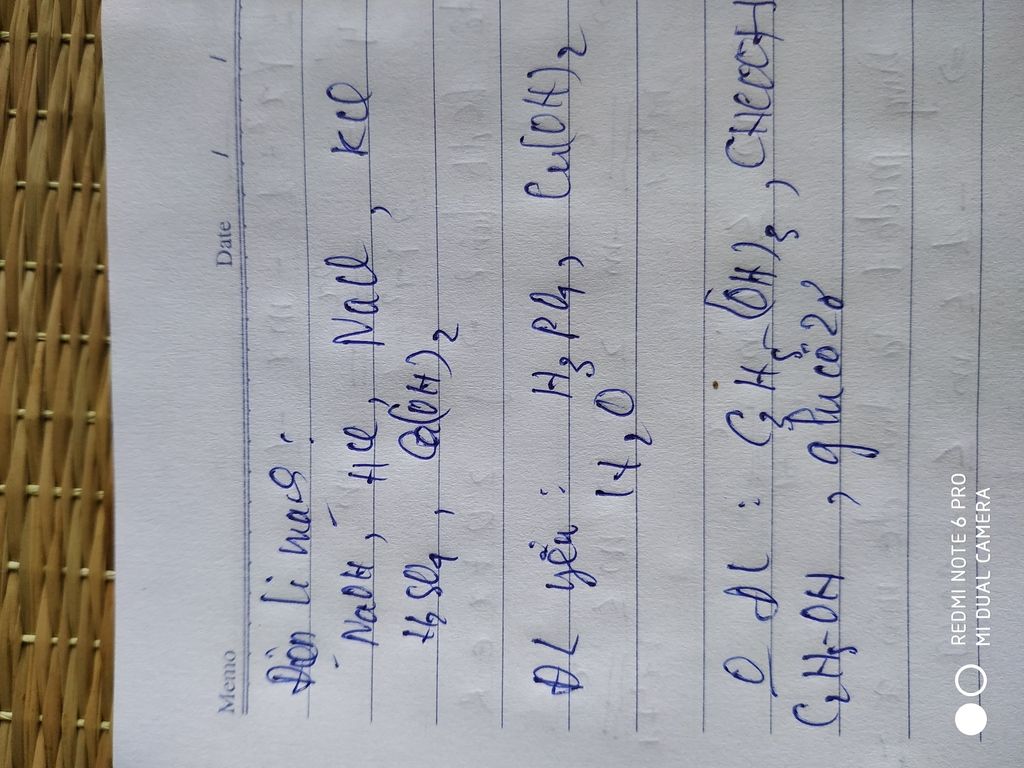 Memo Date / /
Điện li mạnh:
NaOH, HCl, NaCl, KCl
H2SO4, Ca(OH)2
ĐL yếu: H3PO4, Cu(OH)2
H2O
O ĐL: C3H5-(OH)3, CHCOOH
C2H5-OH, glucôzơ
REDMI NOTE 6 PRO
MI DUAL CAMERA